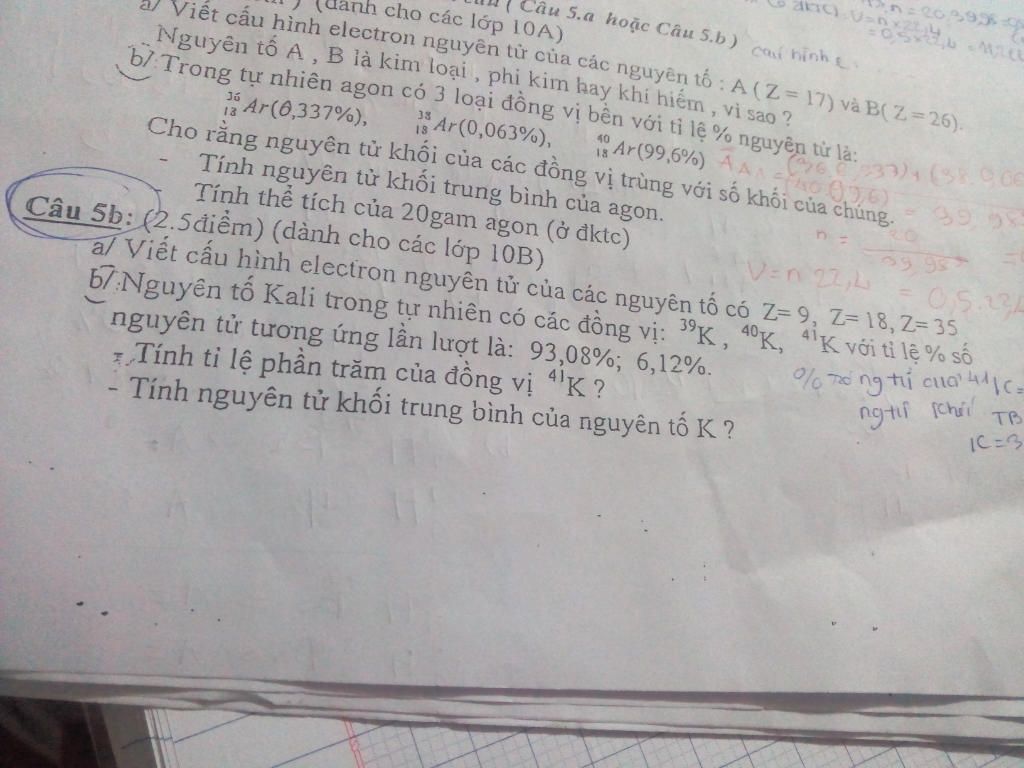 ( Câu 5.a hoặc Câu 5.b )
(dành cho các lớp 10A)
a/ Viết cấu hình electron nguyên tử của các nguyên tố : A ( Z = 17) và B( Z = 26).
Nguyên tố A , B là kim loại , phi kim hay khí hiếm , vì sao ?
b/ Trong tự nhiên agon có 3 loại đồng vị bền với tỉ lệ % nguyên tử là:
³⁶₁₈Ar(0,337%), ³⁸₁₈Ar(0,063%), ⁴⁰₁₈Ar(99,6%)
Cho rằng nguyên tử khối của các đồng vị trùng với số khối của chúng.
- Tính nguyên tử khối trung bình của agon.
- Tính thể tích của 20gam agon (ở đktc)
n = 20
V = n 22,4 = 0,5.22,4
Câu 5b: (2.5điểm) (dành cho các lớp 10B)
a/ Viết cấu hình electron nguyên tử của các nguyên tố có Z= 9, Z= 18, Z= 35
b/ Nguyên tố Kali trong tự nhiên có các đồng vị: ³⁹K , ⁴⁰K, ⁴¹K với tỉ lệ % số
nguyên tử tương ứng lần lượt là: 93,08%; 6,12%.
- Tính tỉ lệ phần trăm của đồng vị ⁴¹K ?
- Tính nguyên tử khối trung bình của nguyên tố K ?